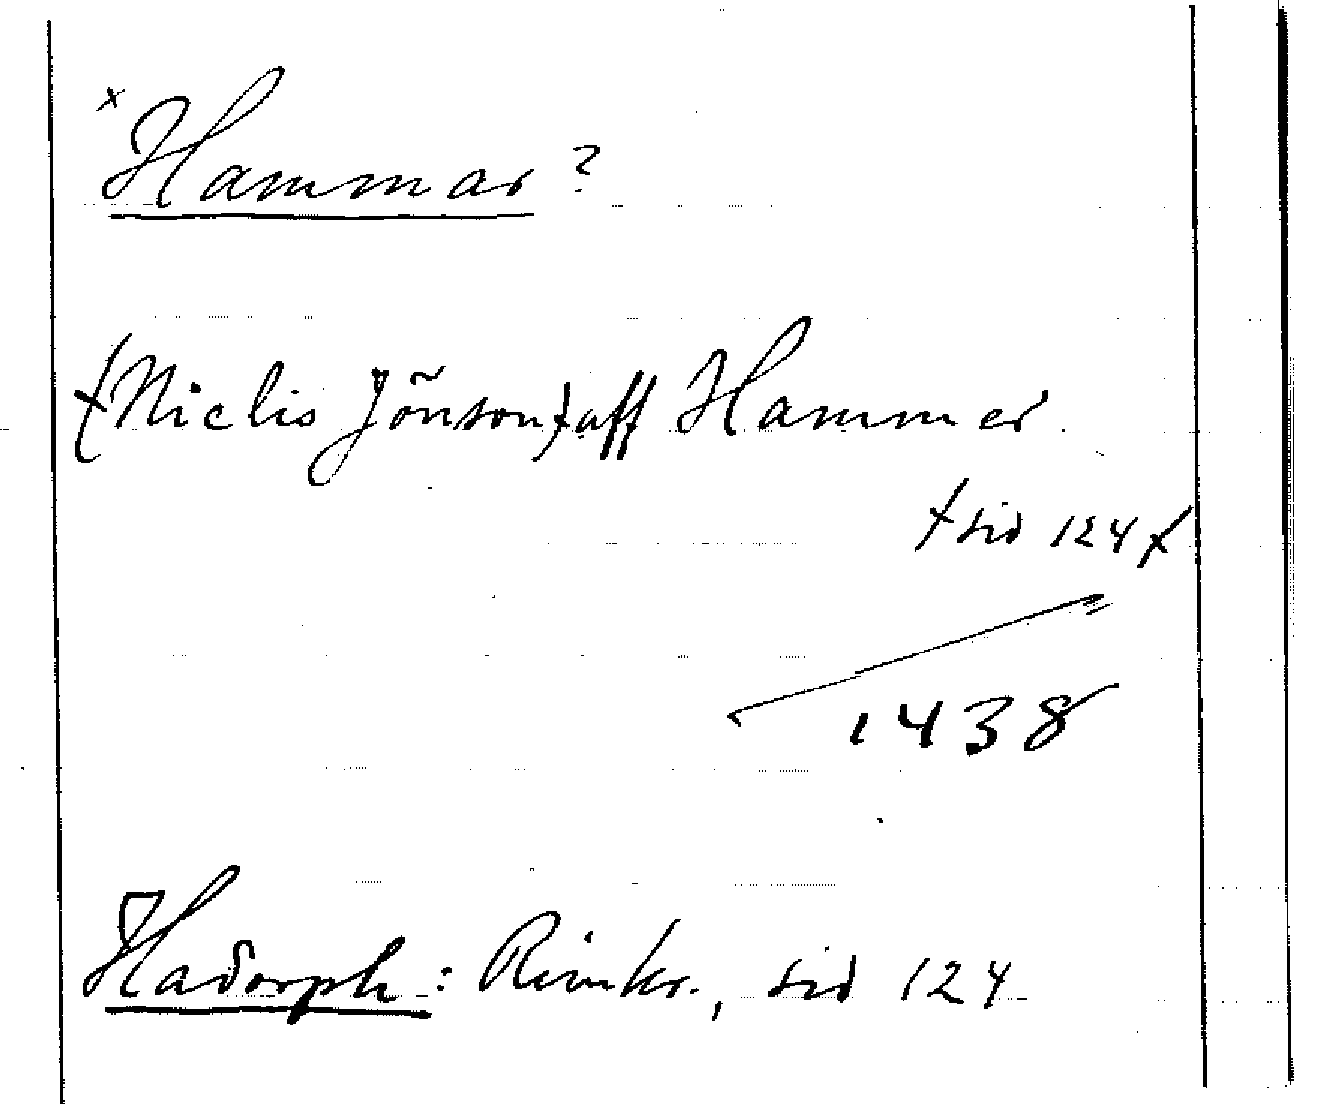 x Hammar ?
(Niclis Jõnson) aff Hammer.
(sid 124)
1438
Hadorph: Rimkr., sid 124